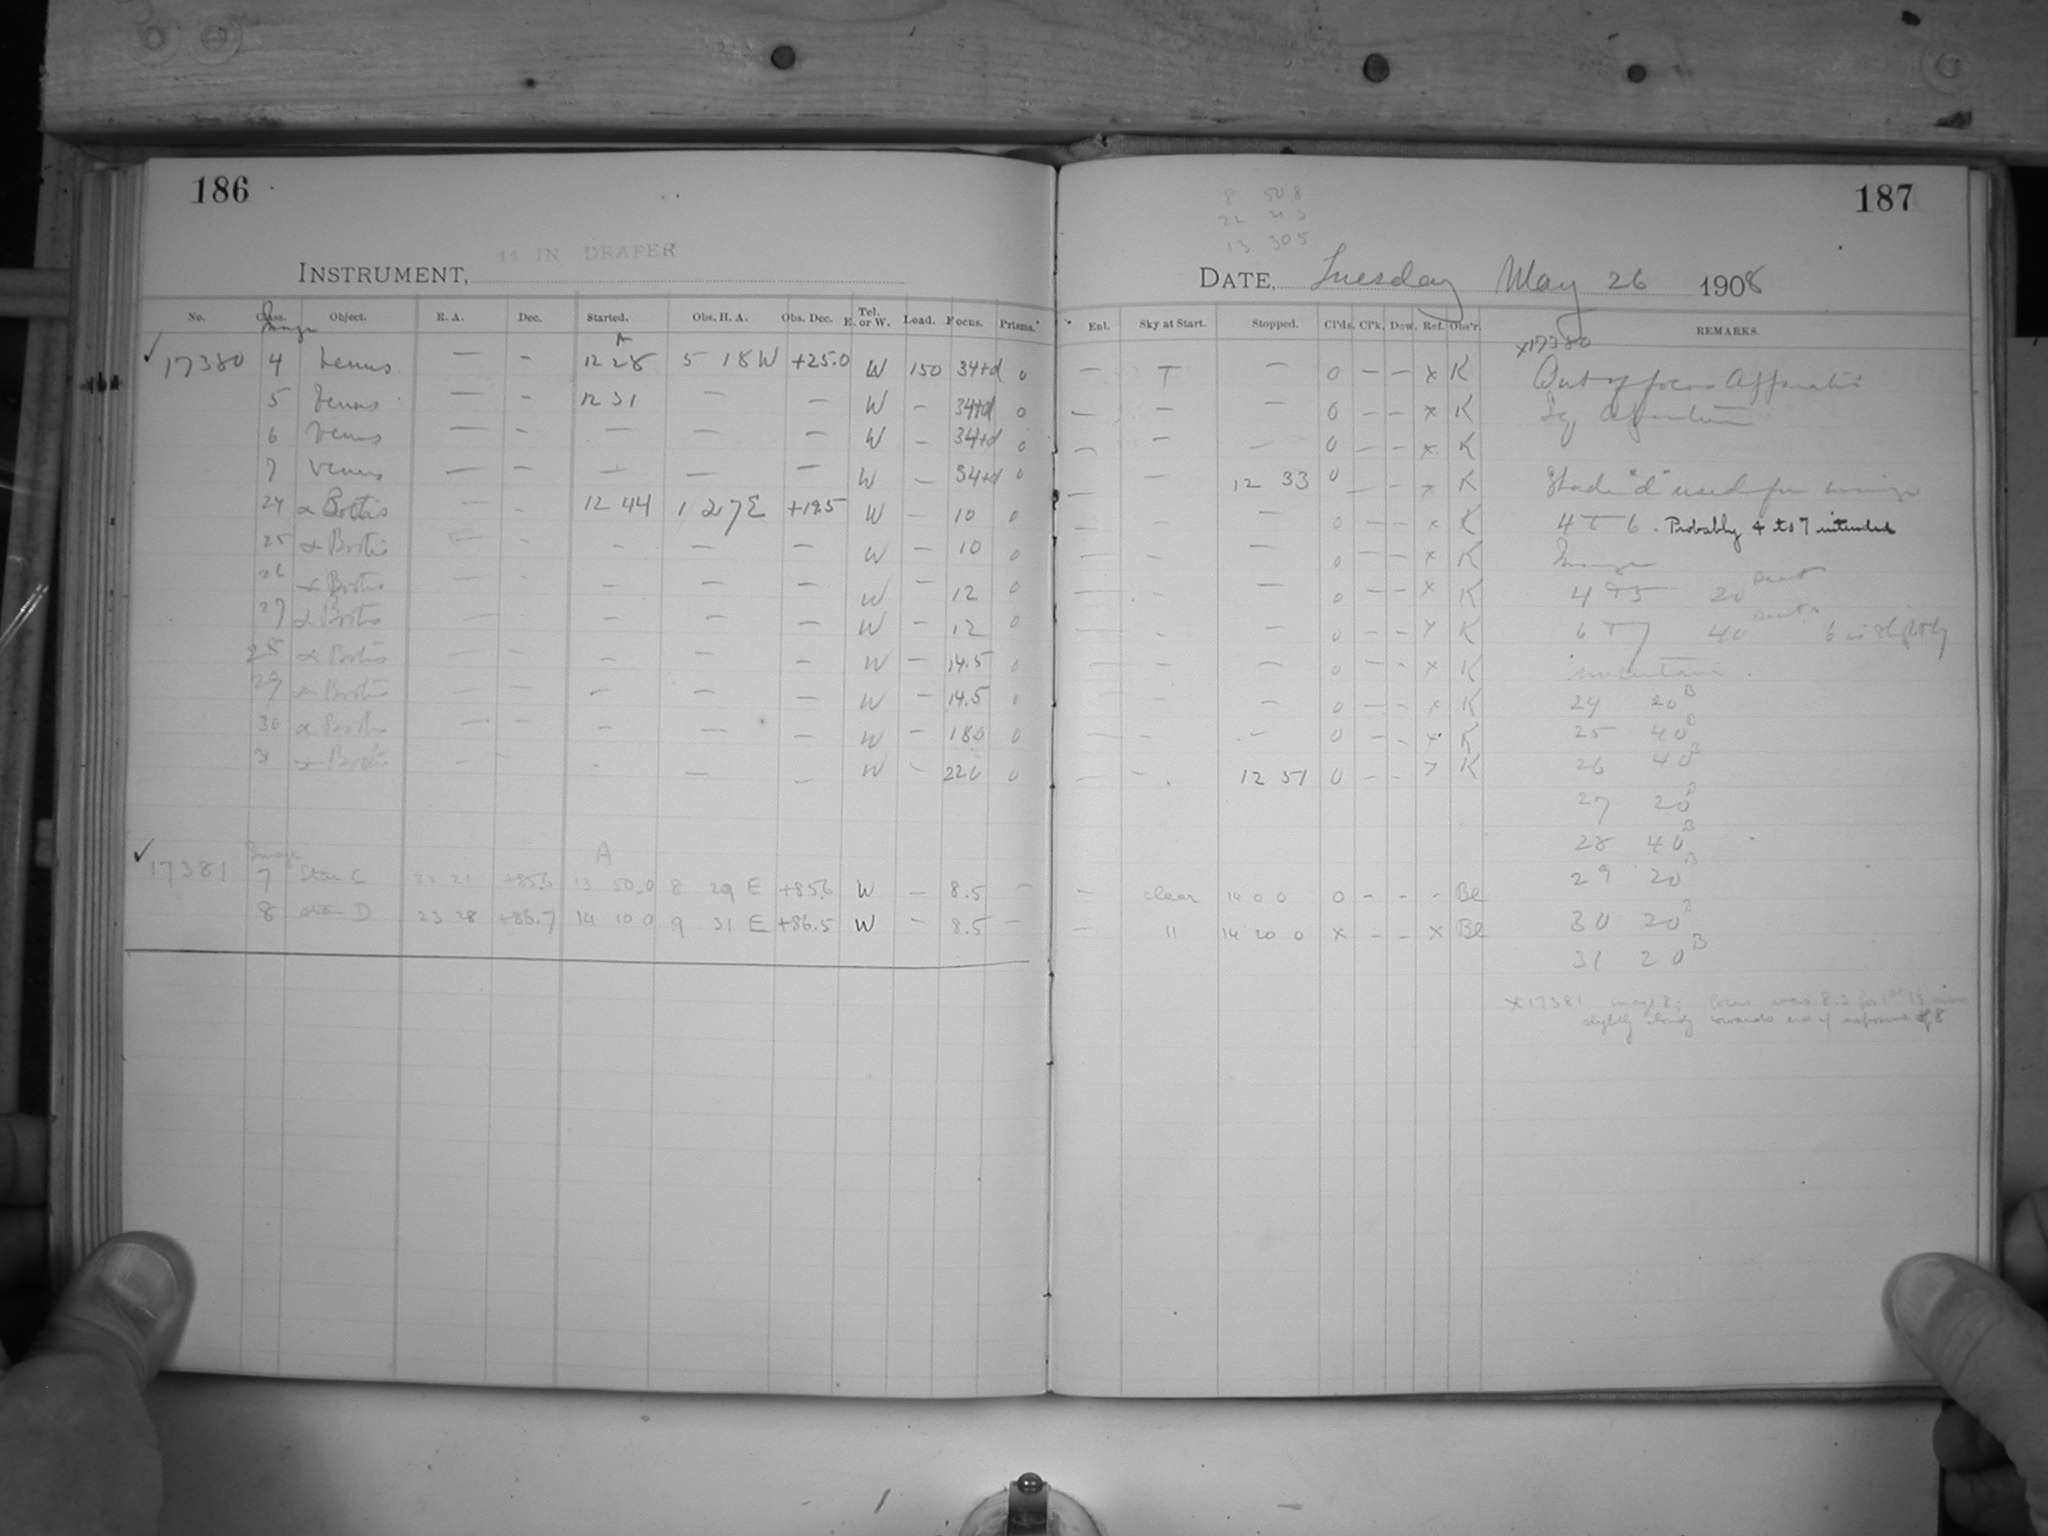 186
11 IN DRAPER
INSTRUMENT,
No. Class. Image Object. R. A. Dec. Started. Obs. H. A. Obs. Dec. Tel. E. or W. Load. Focus. Prisms.
A
✓ 17380 4 Venus — - 12 28 5 18 W +25.0 W 150 34+d 0
5 Venus — - 12 31 — — W — 34+d 0
6 Venus — - — — — W — 34+d 0
7 Venus — - — — — W — 34+d 0
24 α Bootis — - 12 44 1 27 E +19.5 W — 10 0
25 α Bootis — - — — — W — 10 0
26 α Bootis — - — — — W — 12 0
27 α Bootis — - — — — W — 12 0
28 α Bootis — - — — — W — 14.5 0
29 α Bootis — - — — — W — 14.5 0
30 α Bootis — - — — — W — 180 0
31 α Bootis — - — — — W — 22.0 0
Image A
✓ 17381 7 Star C 22 21 +85.6 13 50 0 8 29 E +85.6 W — 8.5 —
8 star D 23 28 +86.7 14 10 0 9 31 E +86.5 W — 8.5 —
187
8 50 8
22 21 3
13 30 5
DATE, Tuesday May 26 1908
Enl. Sky at Start. Stopped. Cl'ds. Cl'k. Dew. Ref. Obs'r. REMARKS.
x17380
— T — 0 — — x K Out of focus Apparatus
— — — 0 — — x K Sq Aperture
— — — 0 — — x K
— — 12 33 0 — — x K Shade "d" used for image
— - — 0 — — x K 4 to 6. Probably 4 to 7 intended
— - — 0 — — x K Image
— - — 0 — — x K 4 to 5 20
— - — 0 — — x K 6 to 7 40 6 is slightly
— - — 0 — — x K uncertain.
— - — 0 — — x K 24 20 B
— - — 0 — — x K 25 40 B
— - 12 51 0 — — x K 26 40 B
27 20 B
28 40 B
— clear 14 0 0 0 - - - Be 29 20 B
— " 14 20 0 x - - x Be 30 20 B
31 20 B
x17381 image 8: focus was 8.2 for 1st 1½ min
slightly cloudy towards end of exposure of 8